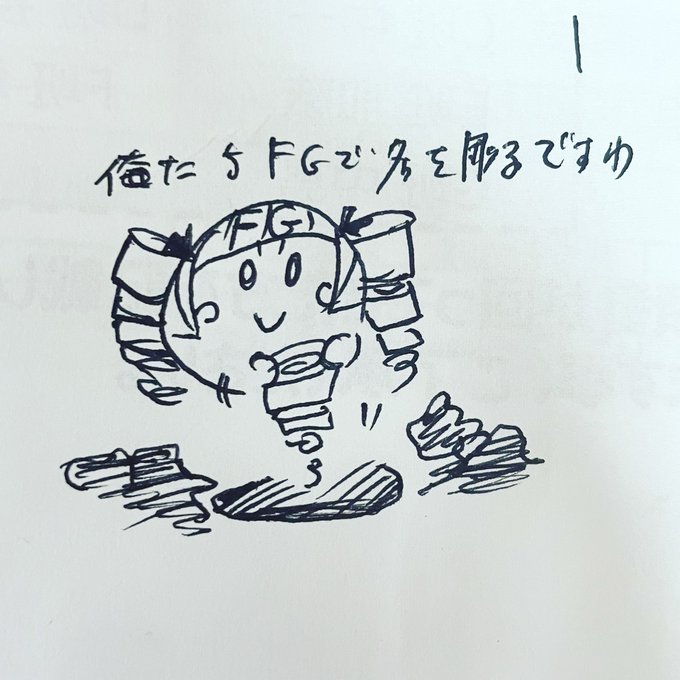 俺たちFGで名を彫るですわ
FG